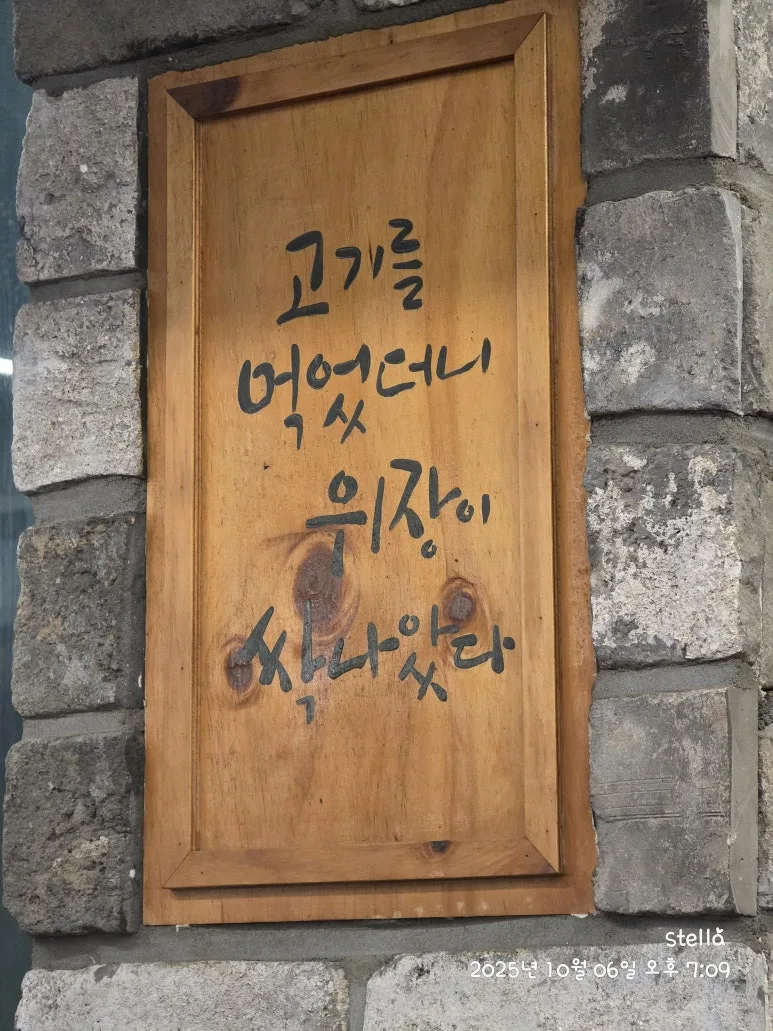 고기를
먹었더니
위장이
싹나았다
stella
2025년 10월 06일 오후 7:09